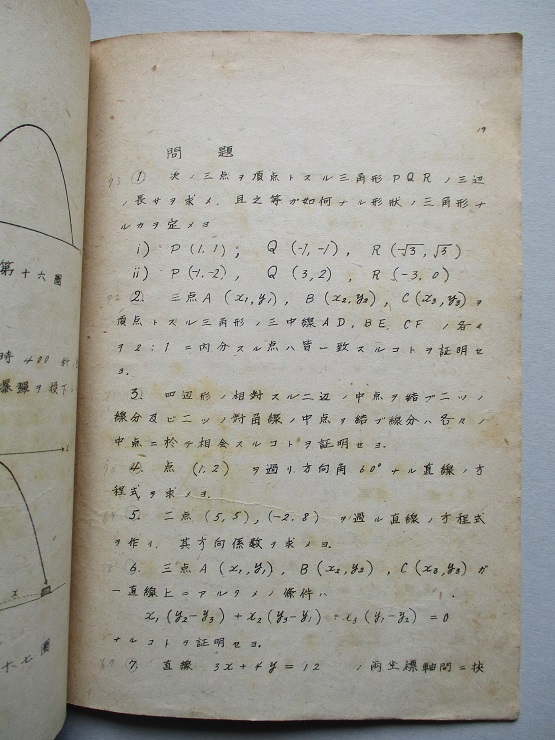 第十六圖
時 400
暴彈ヲ投下
十七圖
19
問 題
93 ① 次ノ三点ヲ頂点トスル三角形PQRノ三辺
ノ長サヲ求メ、且之等ガ如何ナル形狀ノ三角形ナ
ルカヲ定メヨ
i) P(1,1); Q(-1,-1), R(-√3,√3)
ii) P(-1,-2), Q(3,2), R(-3,0)
92 2. 三点A(x₁,y₁), B(x₂,y₂), C(x₃,y₃)ヲ
頂点トスル三角形ノ三中線AD, BE, CFノ各々
ヲ2:1ニ内分スル点ハ皆一致スルコトヲ証明セ
ヨ.
3. 四辺形ノ相対スル二辺ノ中点ヲ結ブ二ツノ
線分及ビ二ツノ対角線ノ中点ヲ結ブ線分ハ各々ノ
中点ニ於テ相会スルコトヲ証明セヨ.
4. 点(1,2)ヲ過リ方向角60°ナル直線ノ方
程式ヲ求メヨ.
5. 二点(5,5),(-2,8)ヲ過ル直線ノ方程式
ヲ作リ、其方向係数ヲ求メヨ.
6. 三点A(x₁,y₁), B(x₂,y₂), C(x₃,y₃)ガ
一直線上ニアルタメノ條件ハ
x₁(y₂-y₃)+x₂(y₃-y₁)+x₃(y₁-y₂)=0
ナルコトヲ証明セヨ.
7. 直線 3x+4y=12 ノ両坐標軸間ニ挾